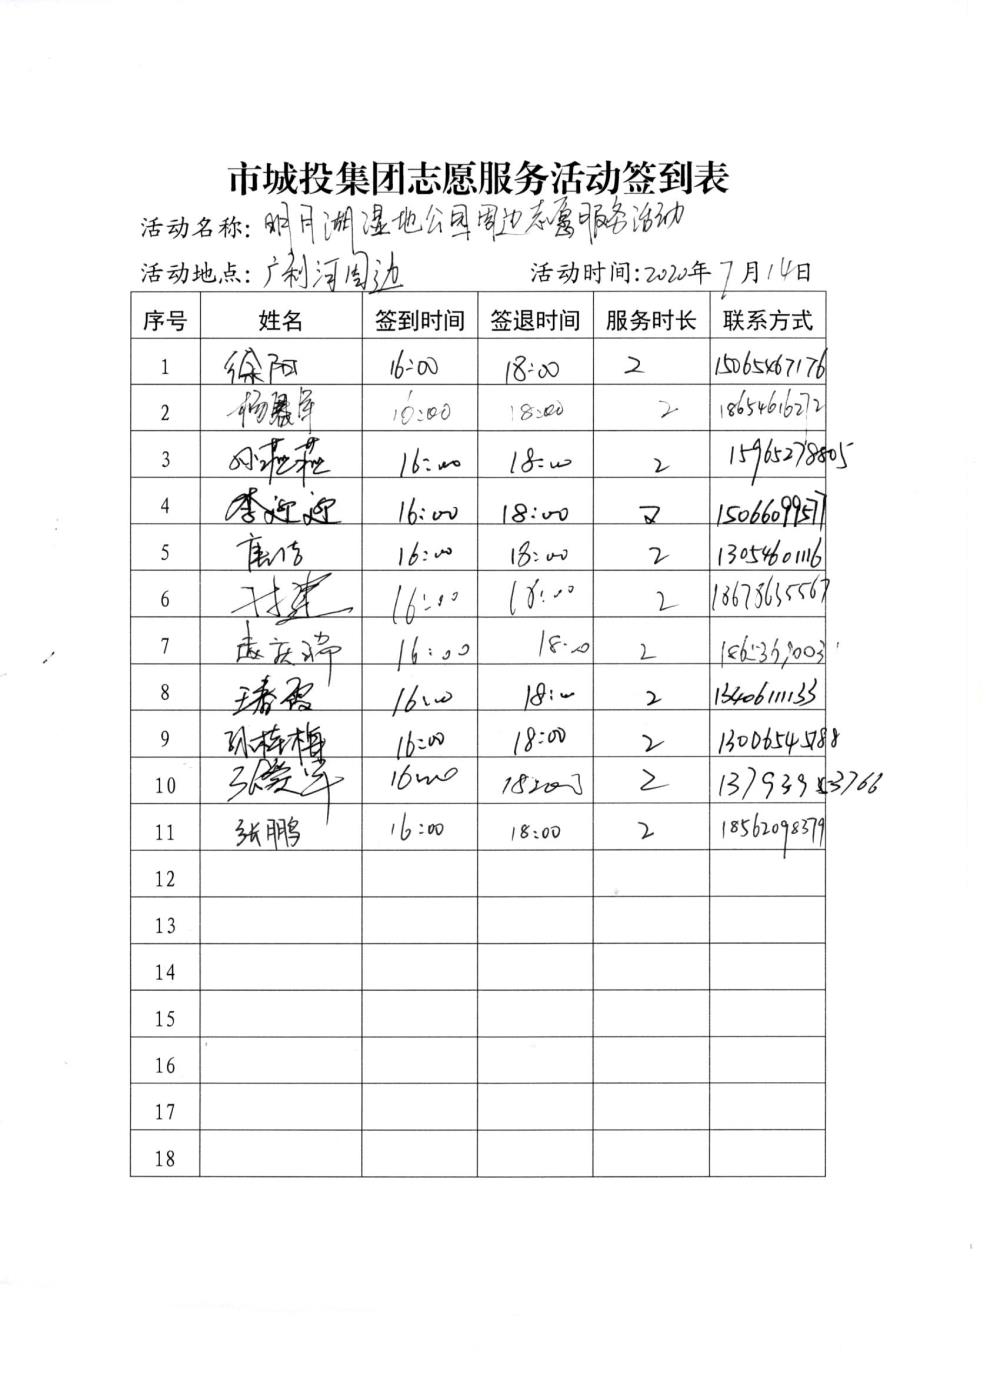 市城投集团志愿服务活动签到表
活动名称: 明月湖湿地公园周边志愿服务活动
活动地点: 广利河周边 活动时间:2020年7月14日
序号 姓名 签到时间 签退时间 服务时长 联系方式
1 徐阳 16:00 18:00 2 15065467176
2 16:00 18:00 2 18654616272
3 孙燕燕 16:00 18:00 2 15965278805
4 李迎迎 16:00 18:00 2 15066099577
5 唐洁 16:00 18:00 2 13054601116
6 16:00 18:00 2 18678635567
7 孟庆瑞 16:00 18:00 2
8 王春霞 16:00 18:00 2 13406111133
9 孙桂梅 16:00 18:00 2 13006545788
10 16:00 18:00 2
11 张鹏 16:00 18:00 2 18562098379
12
13
14
15
16
17
18